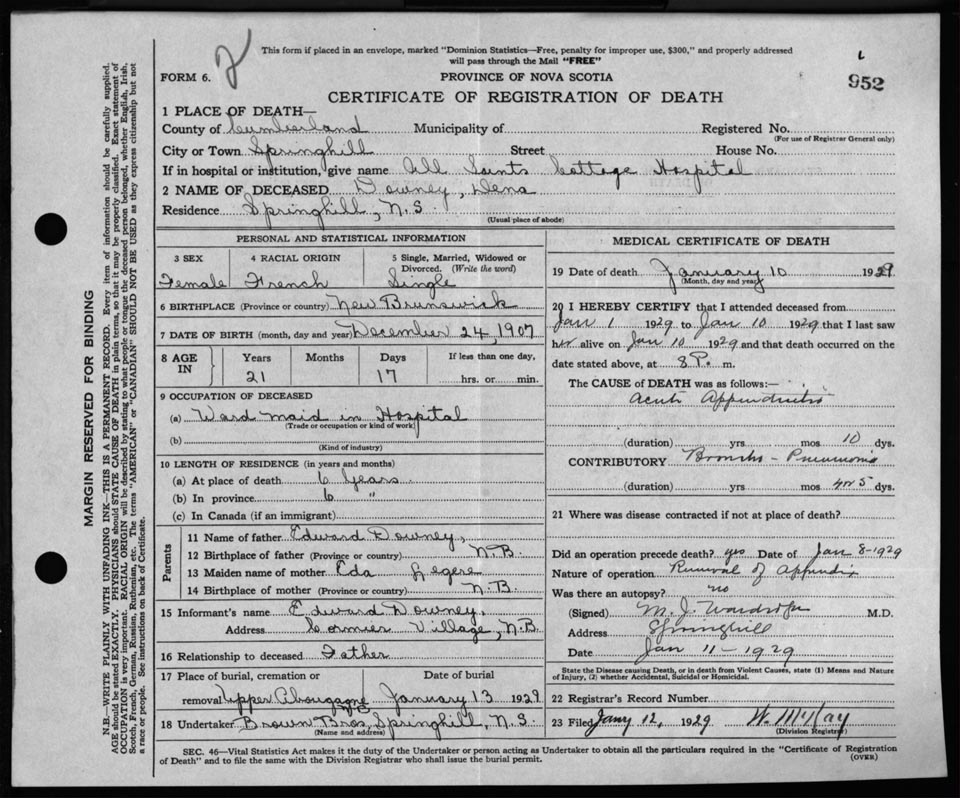 2
This form if placed in an envelope, marked "Dominion Statistics—Free, penalty for improper use, $300," and properly addressed
will pass through the Mail "FREE"
FORM 6.
PROVINCE OF NOVA SCOTIA
952
CERTIFICATE OF REGISTRATION OF DEATH
1 PLACE OF DEATH—
County of Cumberland Municipality of Registered No.
(For use of Registrar General only)
City or Town Springhill Street House No.
If in hospital or institution, give name All Saints Cottage Hospital
2 NAME OF DECEASED Downey, Dena
Residence Springhill, N.S.
(Usual place of abode)
PERSONAL AND STATISTICAL INFORMATION
3 SEX 4 RACIAL ORIGIN 5 Single, Married, Widowed or
Divorced. (Write the word)
Female French Single
6 BIRTHPLACE (Province or country) New Brunswick
7 DATE OF BIRTH (month, day and year) December 24, 1907
8 AGE IN Years Months Days If less than one day,
21 17 hrs. or min.
9 OCCUPATION OF DECEASED
(a) Ward maid in Hospital
(Trade or occupation or kind of work)
(b)
(Kind of industry)
10 LENGTH OF RESIDENCE (in years and months)
(a) At place of death 6 Years
(b) In province 6 "
(c) In Canada (if an immigrant)
Parents
11 Name of father Edward Downey,
12 Birthplace of father (Province or country) N.B.
13 Maiden name of mother Eda Legere
14 Birthplace of mother (Province or country) N.B.
15 Informant's name Edward Downey,
Address Cormier Village, N.B.
16 Relationship to deceased Father
17 Place of burial, cremation or Date of burial
removal Upper Abougagne January 13 1929
18 Undertaker Brown Bros, Springhill, N.S.
(Name and address)
MEDICAL CERTIFICATE OF DEATH
19 Date of death January 10 1929
(Month, day and year)
20 I HEREBY CERTIFY that I attended deceased from
Jan 1 1929 to Jan 10 1929 that I last saw
her alive on Jan 10 1929 and that death occurred on the
date stated above, at 8 P. m.
The CAUSE of DEATH was as follows:—
Acute Appendicitis
(duration) yrs mos 10 dys.
CONTRIBUTORY Broncho-Pneumonia
(duration) yrs mos 4 or 5 dys.
21 Where was disease contracted if not at place of death?
Did an operation precede death? yes Date of Jan 8-1929
Nature of operation Removal of Appendix
Was there an autopsy? no
(Signed) M. J. Wardrope M.D.
Address Springhill
Date Jan 11-1929
State the Disease causing Death, or in death from Violent Causes, state (1) Means and Nature
of Injury, (2) whether Accidental, Suicidal or Homicidal.
22 Registrar's Record Number
23 Filed Jany 12, 1929 W. McKay
(Division Registrar)
SEC. 46—Vital Statistics Act makes it the duty of the Undertaker or person acting as Undertaker to obtain all the particulars required in the "Certificate of Registration
of Death" and to file the same with the Division Registrar who shall issue the burial permit.
(OVER)
MARGIN RESERVED FOR BINDING
N.B.—WRITE PLAINLY WITH UNFADING INK—THIS IS A PERMANENT RECORD. Every item of information should be carefully supplied.
AGE should be stated EXACTLY. PHYSICIANS should STATE CAUSE OF DEATH in plain terms, so that it may be properly classified. Exact statement of
OCCUPATION is very important. RACIAL ORIGIN will be described by stating to what people or tongue the deceased person belonged, whether English, Irish,
Scotch, French, German, Russian, Ruthenian, etc. The terms "AMERICAN" or "CANADIAN" SHOULD NOT BE USED as they express citizenship but not
a race or people. See instructions on back of Certificate.